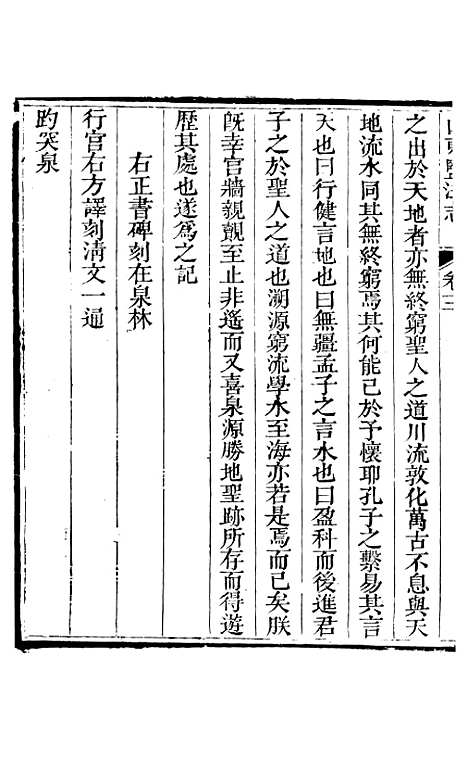 山東鹽法志 卷三
之出於天地者亦無終窮聖人之道川流敦化萬古不息與天
地流水同其無終窮焉其何能已於予懷耶孔子之繫易其言
天也曰行健言地也曰無疆孟子之言水也曰盈科而後進君
子之於聖人之道也溯源窮流學水至海亦若是焉而已矣朕
旣幸宮牆親覿至止非遙而又喜泉源勝地聖跡所存而得遊
歷其處也遂爲之記
右正書碑刻在泉林
行宮右方譯刻淸文一通
趵突泉